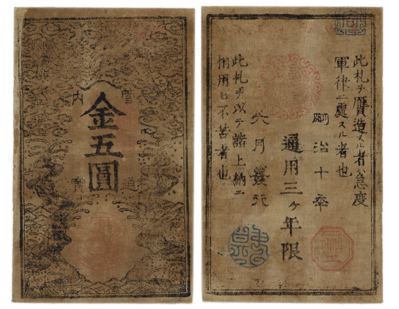 管内
金五圓
此札ヲ贋造スル者ハ急度
軍律ニ處スル者也
明治十年
六月發行
通用三ケ年限
此札ヲ以テ諸上納ニ
相用ヒ不苦者也